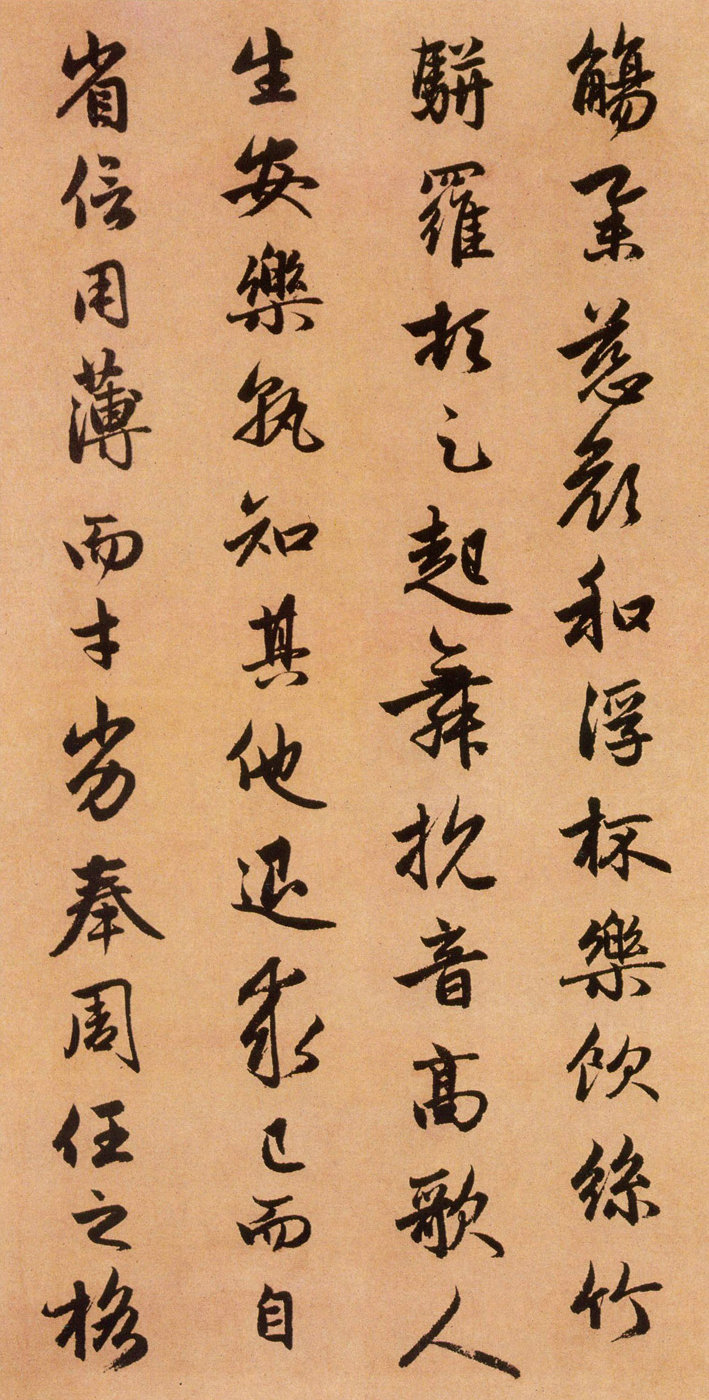 觴舉慈顏和浮杯樂飲絲竹
駢羅頓足起舞抗音高歌人
生安樂孰知其他退求己而自
省信用薄而才劣奉周任之格